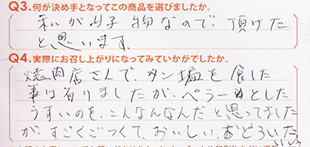 Q3.何が決め手となってこの商品を選びましたか。
私が好物なので頂けた
と思います。
Q4.実際にお召し上がりになってみていかがでしたか。
焼肉店さんで、タン塩を食した
事は有りましたが、ペラーッとした
うすいのを、こんなんなんだと思ってました
が、すごくごつくて、おいしい、おどろいた